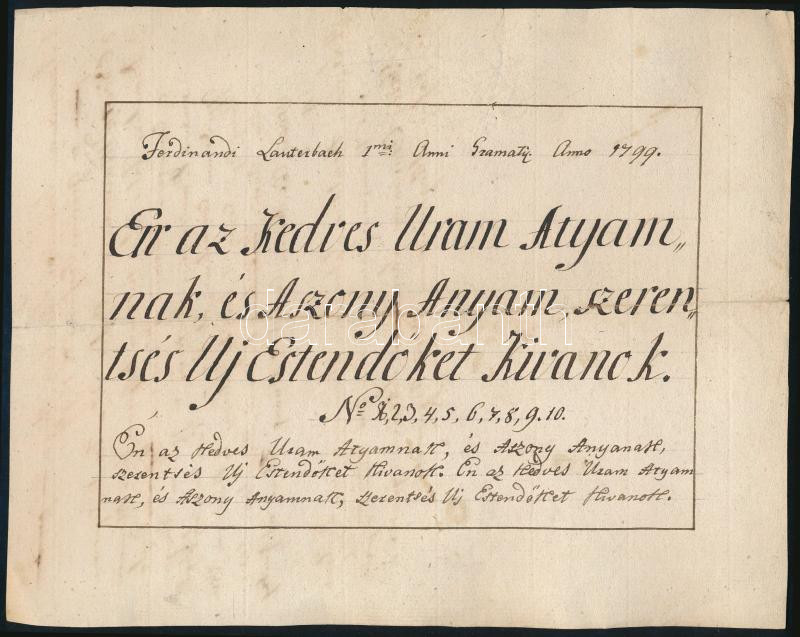 Ferdinandi Lauterbach 1mi Anni Gramatij. Anno 1799.
En az Kedves Uram Atyam„
nak, és Aszony Anyam, szeren„
tsés Uj Estendőket Kivanok.
No 1,2,3,4,5,6,7,8,9.10.
Én az Kedves Uram Atyamnak, és Aszony Anyanak,
szerentsés Uj Estendőket Kivanok. En az Kedves Uram Atyam
nak, és Aszony Anyamnak, szerentsés Uj Estendőket Kivanok.
darabanth